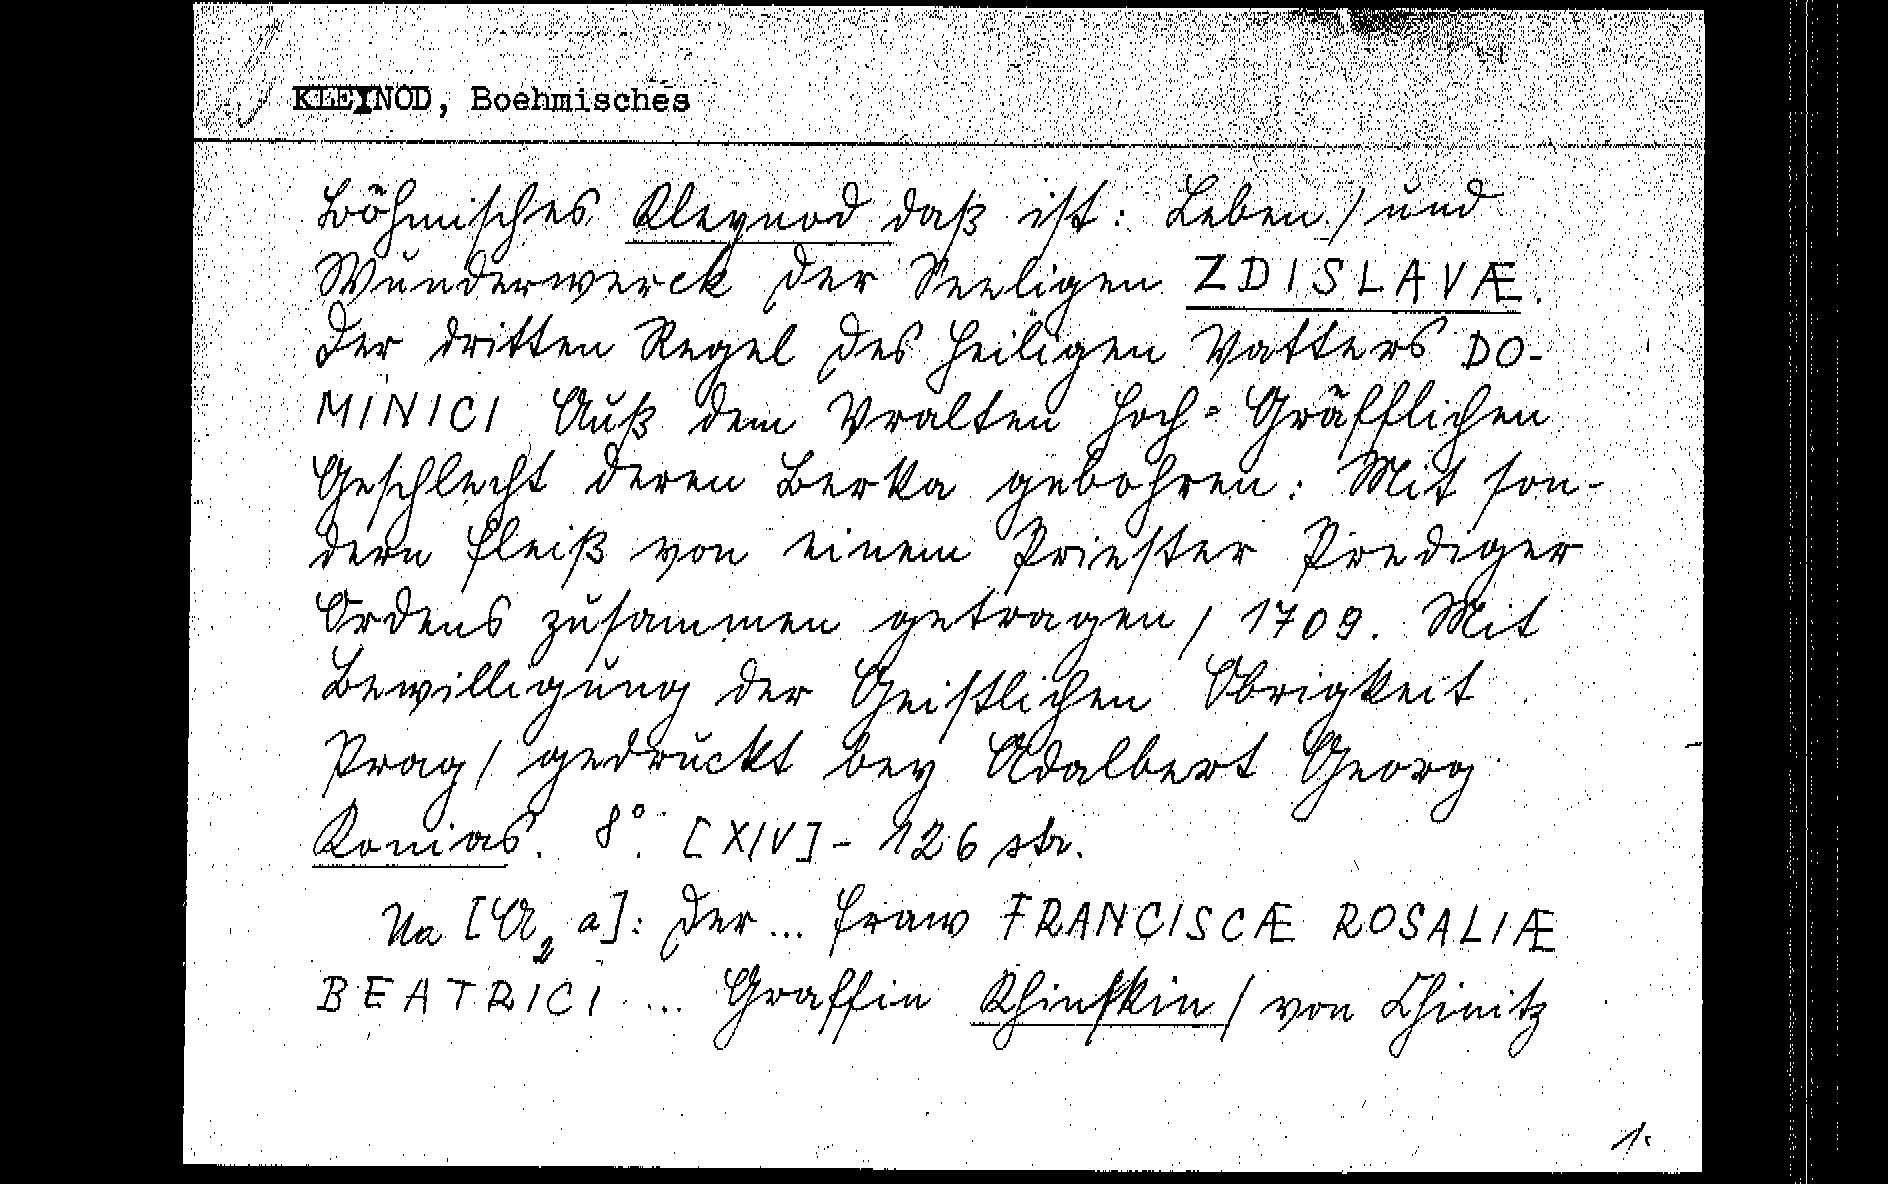 KLEYNOD, Boehmisches
Böhmisches Kleynod daß ist: Leben / und
Wunderwerck der Seeligen ZDISLAVÆ.
Der dritten Regel des heiligen Vatters DO-
MINICI Auß dem Vralten Hoch= Gräfflichen
Geschlecht deren Berka gebohren: Mit son-
dern fleiß von einem Priester Prediger
Ordens zusammen getragen / 1709. Mit
Bewilligung der Geistlichen Obrigkeit
Prag / gedruckt bey Adalbert Georg
Konias. 8°. [XIV] - 126 str.
Na [A2 a]: Der ... fraw FRANCISCÆ ROSALIÆ
BEATRICI ... Graffin Khinskin / von Chinitz
1.